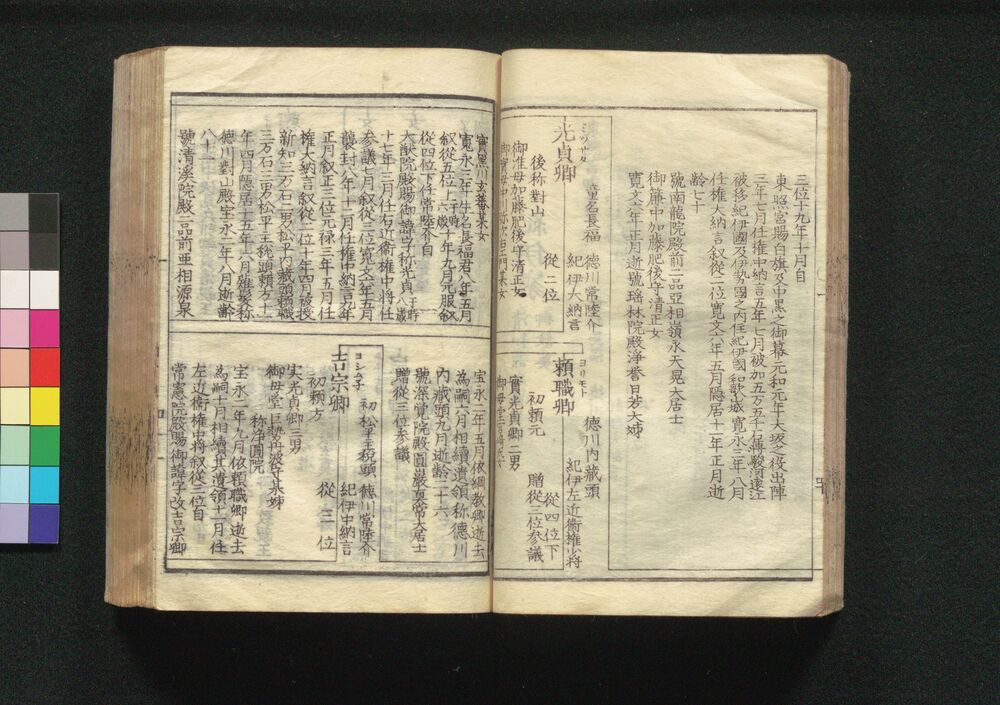 三位十九年十月自
東照宮賜白旗及中黒之御幕元和元年大坂之役出陣
三年七月任権中納言五年七月被加五万五千石轉駿河遠江
被移紀伊國及伊勢國之内住紀伊國和歌山城寛永三年八月
任権大納言叙従二位寛文六年五月隠居十一年正月逝
齢七十
號南龍院殿前二品亞相嶺永天晃大居士
御簾中加藤肥後守清正女
寛文六年正月逝號瑶林院殿浄誉日芳大姉
ミツサダ
光貞卿
童名長福
徳川常陸介
紀伊大納言
後称對山
従二位
御准母加藤肥後守清正女
ヨリモト
頼職卿
徳川内蔵頭
紀伊左近衛権少将
初頼元
従四位下
贈従三位参議
實光貞卿二男
寛永三年生名長福君八年五月
叙従五位上于時六歳十年九月元服叙
従四位下任常陸介自
大猷院殿賜御諱字称光貞于時八歳
十七年三月任右近衛権中将任
参議七月叙従三位寛文七年五月
襲封八年十二月任権中納言九年
正月叙正三位元禄三年五月任
権大納言叙従二位十年四月被授
新知三万石二男松平内蔵頭頼職
三万石三男松平主税頭頼方十一
年四月隠居十五年六月薙髪称
徳川對山殿宝永二年八月逝齢
八十一
號清渓院殿二品前亜相源泉
宝永二年五月依綱教卿逝去
為嗣六月相續遺領称徳川
内蔵頭九月逝齢二十六
號深覚院殿圓巌真常大居士
贈従三位参議
ヨシムネ
吉宗卿
初松平主税頭
徳川常陸介
紀伊中納言
初頼方
従三位
実光貞卿三男
御母堂巨勢丹波守某姉
称浄圓院
宝永二年九月依頼職卿逝去
為嗣十月相續其遺領十二月任
左近衛権中将叙従三位自
常憲院殿賜御諱字改吉宗卿